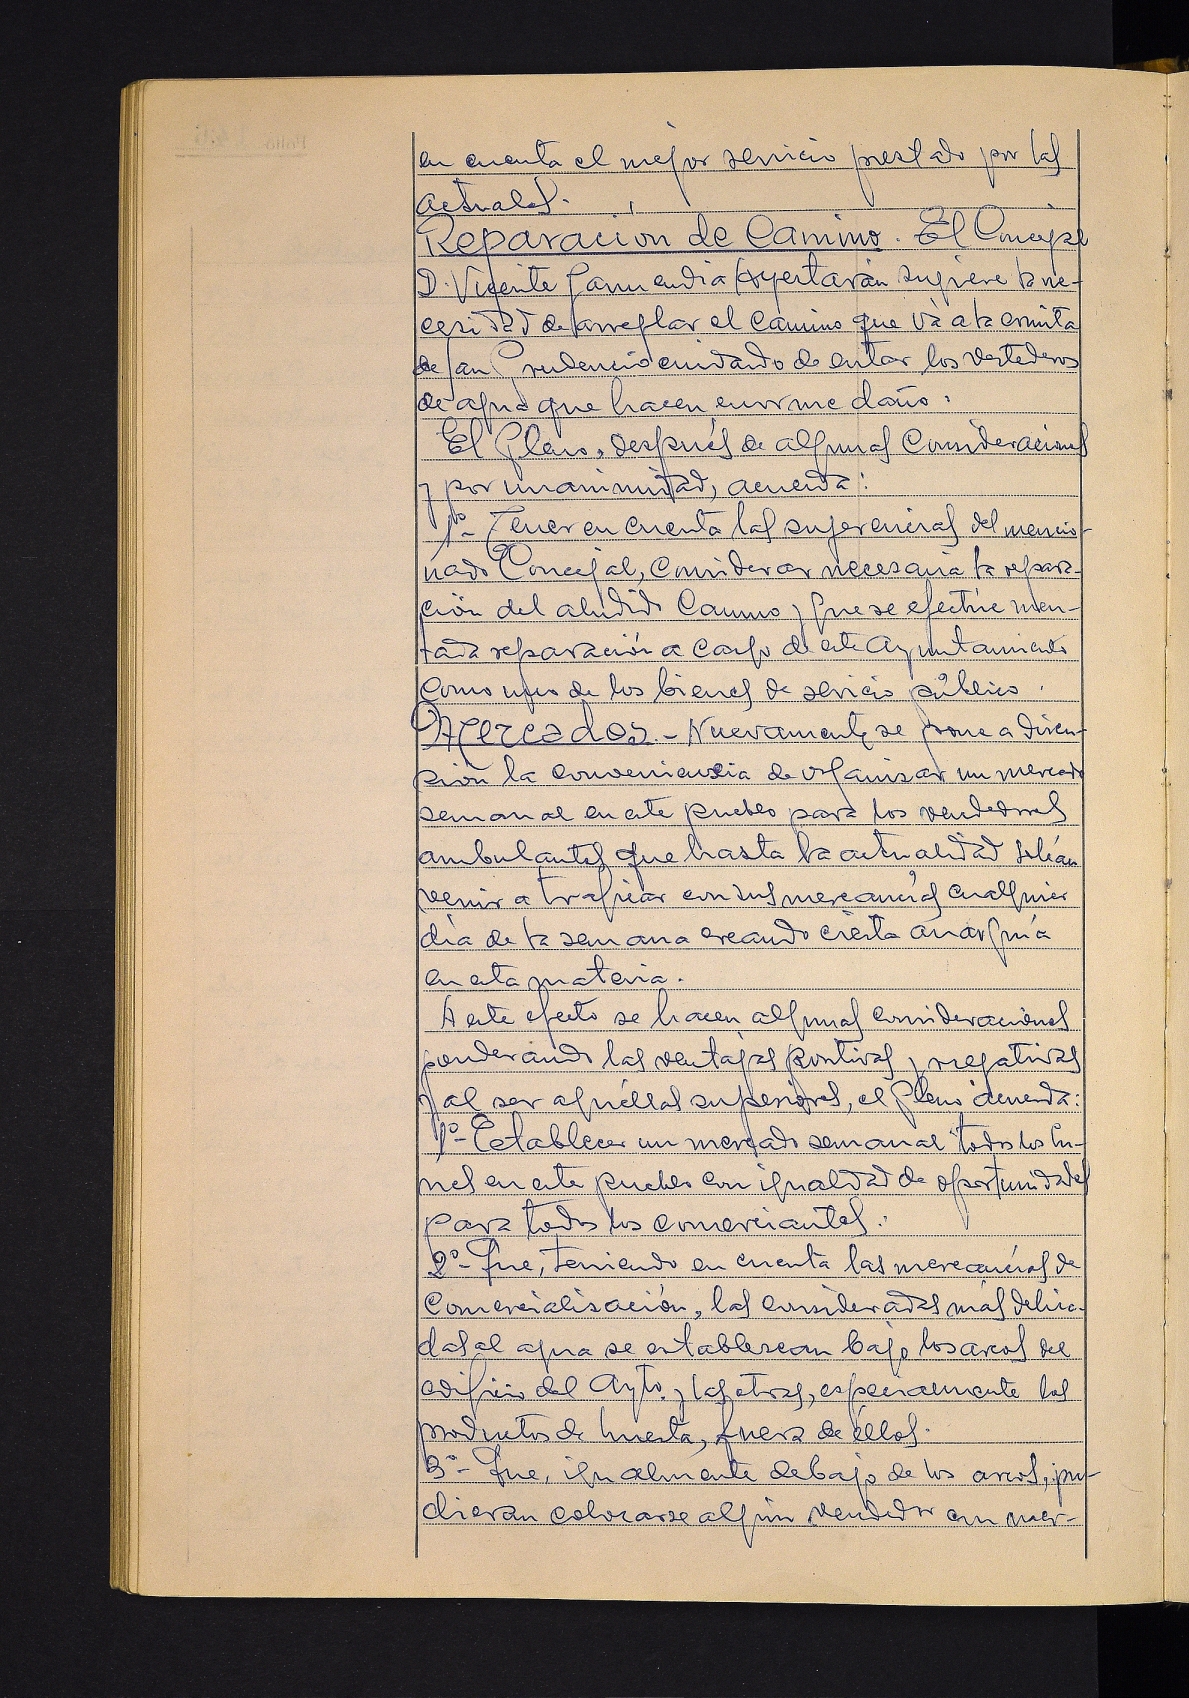 en cuenta el mejor servicio prestado por las
actuales.
Reparación de Camino. El Concejal
D. Vicente Garmendia Ayestarán sugiere la ne-
cesidad de arreglar el camino que vá a la ermita
de San Prudencio cuidando de evitar los vertederos
de agua que hacen enorme daño.
El Pleno, después de algunas consideraciones
y por unanimidad, acuerda:
1º- Tener en cuenta las sugerencias del mencio-
nado Concejal, considerar necesaria la repara-
ción del aludido Camino y que se efectúe men-
tada reparación a cargo de este Ayuntamiento
como uno de los bienes de servicio público.
Mercados.- Nuevamente se pone a discu-
sión la conveniencia de organizar un mercado
semanal en este pueblo para los vendedores
ambulantes que hasta la actualidad solían
venir a traficar con sus mercancías cualquier
día de la semana creando cierta anarquía
en esta materia.
A este efecto se hacen algunas consideraciones
ponderando las ventajas positivas y negativas
y al ser aquéllas superiores, el Pleno acuerda:
1º- Establecer un mercado semanal todos los lu-
nes en este pueblo con igualdad de oportunidades
para todos los comerciantes.
2º- Que, teniendo en cuenta las mercancías de
Comercialización, las consideradas más delica-
das al agua se establezcan bajo los arcos del
edificio del Ayto. y las otras, especialmente los
productos de huerta, fuera de éllos.
3º- Que, igualmente debajo de los arcos, pu-
dieran colocarse algún vendedor con mer-